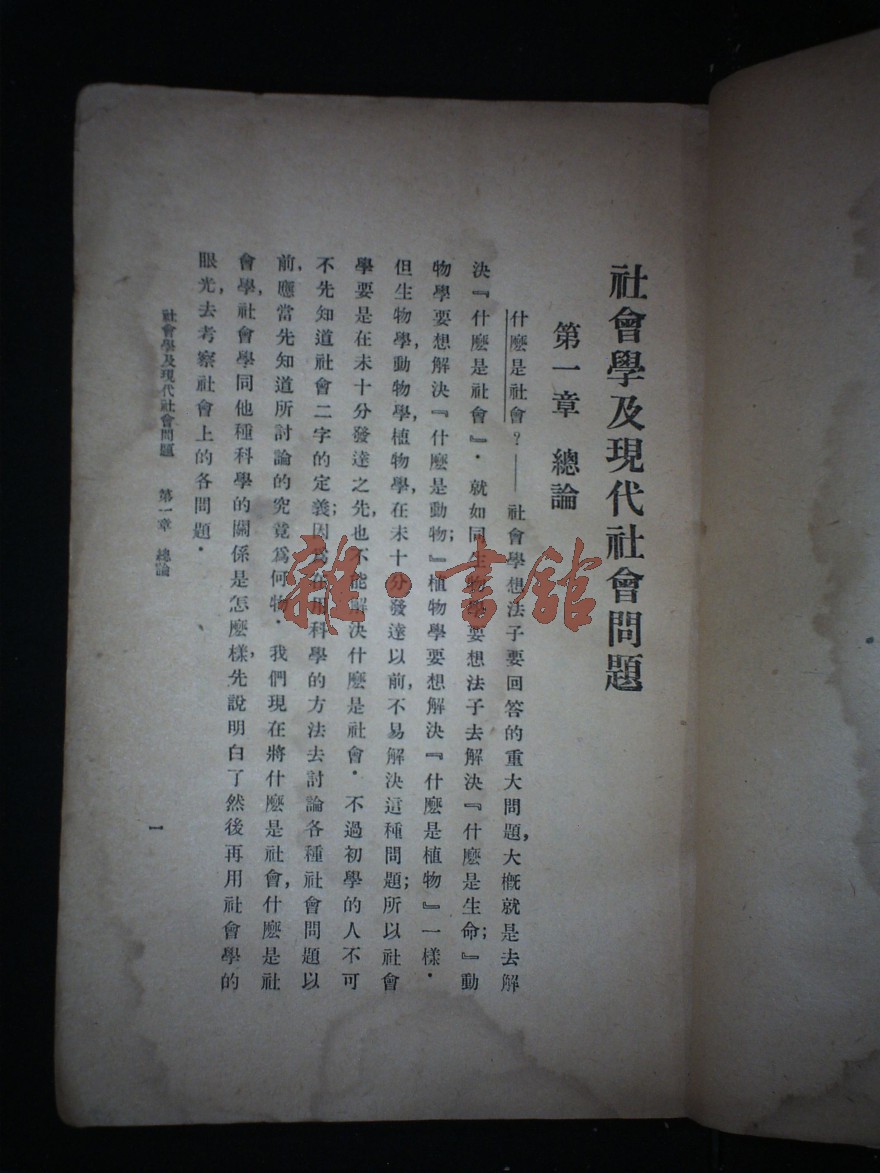 社會學及現代社會問題
第一章 總論
什麽是社會?——社會學想法子要回答的重大問題,大概就是去解
決『什麽是社會』. 就如同生物學要想法子去解決『什麽是生命;』動
物學要想解決『什麽是動物;』植物學要想解決『什麽是植物』一樣.
但生物學,動物學,植物學,在未十分發達以前,不易解決這種問題;所以社會
學要是在未十分發達之先,也不能解決什麽是社會. 不過初學的人不可
不先知道社會二字的定義;因爲在用科學的方法去討論各種社會問題以
前,應當先知道所討論的究竟爲何物. 我們現在將什麽是社會,什麽是社
會學,社會學同他種科學的關係是怎麽樣,先說明白了然後再用社會學的
眼光,去考察社會上的各問題.
社會學及現代社會問題 第一章 總論
一
雜·書館